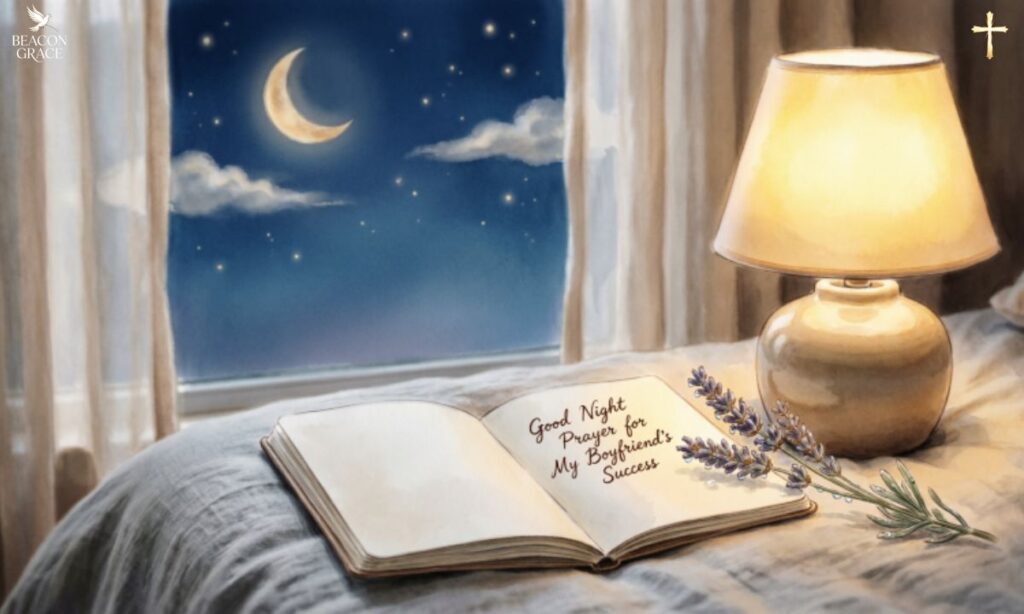 BEACON
GRACE
Good Night
Prayer for
My Boyfriend's
Success